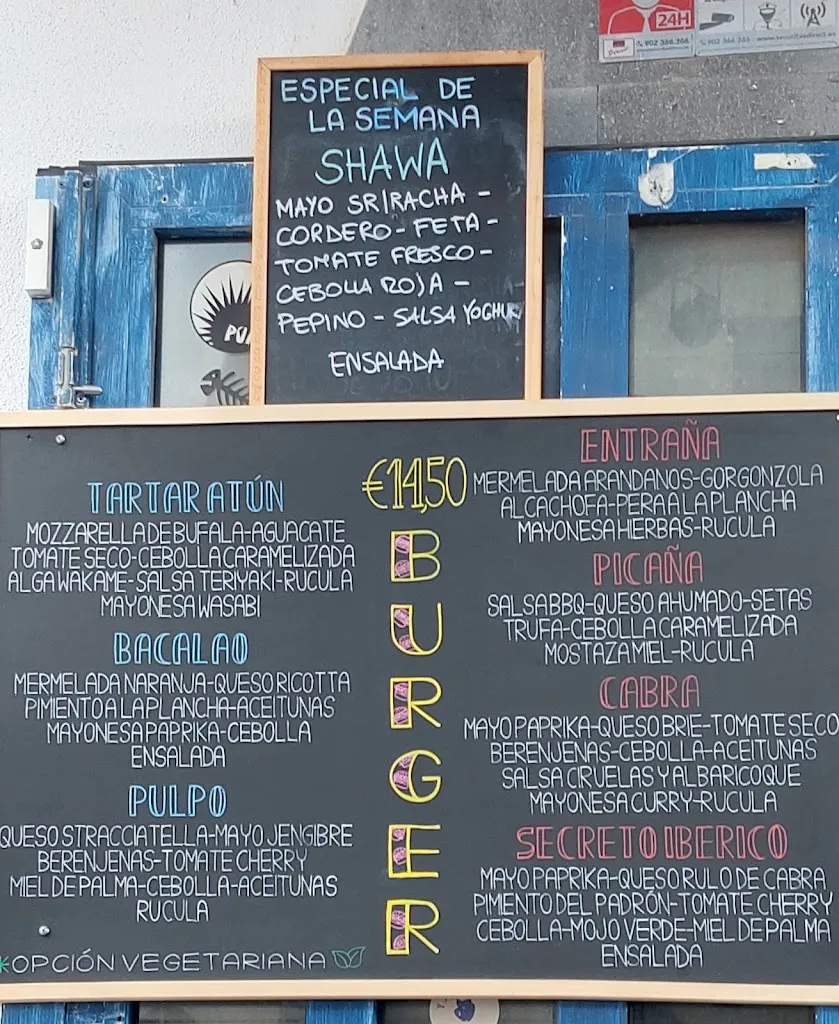 24H
902 366 366
902 366 366
ESPECIAL DE
LA SEMANA
SHAWA
MAYO SRIRACHA -
CORDERO - FETA -
TOMATE FRESCO -
CEBOLLA ROJA -
PEPINO - SALSA YOGHUR
ENSALADA
TARTAR ATÚN
MOZZARELLA DE BUFALA-AGUACATE
TOMATE SECO-CEBOLLA CARAMELIZADA
ALGA WAKAME-SALSA TERIYAKI-RUCULA
MAYONESA WASABI
BACALAO
MERMELADA NARANJA-QUESO RICOTTA
PIMIENTO A LA PLANCHA-ACEITUNAS
MAYONESA PAPRIKA-CEBOLLA
ENSALADA
PULPO
QUESO STRACCIATELLA-MAYO JENGIBRE
BERENJENAS-TOMATE CHERRY
MIEL DE PALMA-CEBOLLA-ACEITUNAS
RUCULA
*OPCIÓN VEGETARIANA
€14,50
BURGER
ENTRAÑA
MERMELADA ARANDANOS-GORGONZOLA
ALCACHOFA-PERA A LA PLANCHA
MAYONESA HIERBAS-RUCULA
PICAÑA
SALSA BBQ-QUESO AHUMADO-SETAS
TRUFA-CEBOLLA CARAMELIZADA
MOSTAZA MIEL-RUCULA
CABRA
MAYO PAPRIKA-QUESO BRIE-TOMATE SECO
BERENJENAS-CEBOLLA-ACEITUNAS
SALSA CIRUELAS Y ALBARICOQUE
MAYONESA CURRY-RUCULA
SECRETO IBERICO
MAYO PAPRIKA-QUESO RULO DE CABRA
PIMIENTO DEL PADRÓN-TOMATE CHERRY
CEBOLLA-MOJO VERDE-MIEL DE PALMA
ENSALADA